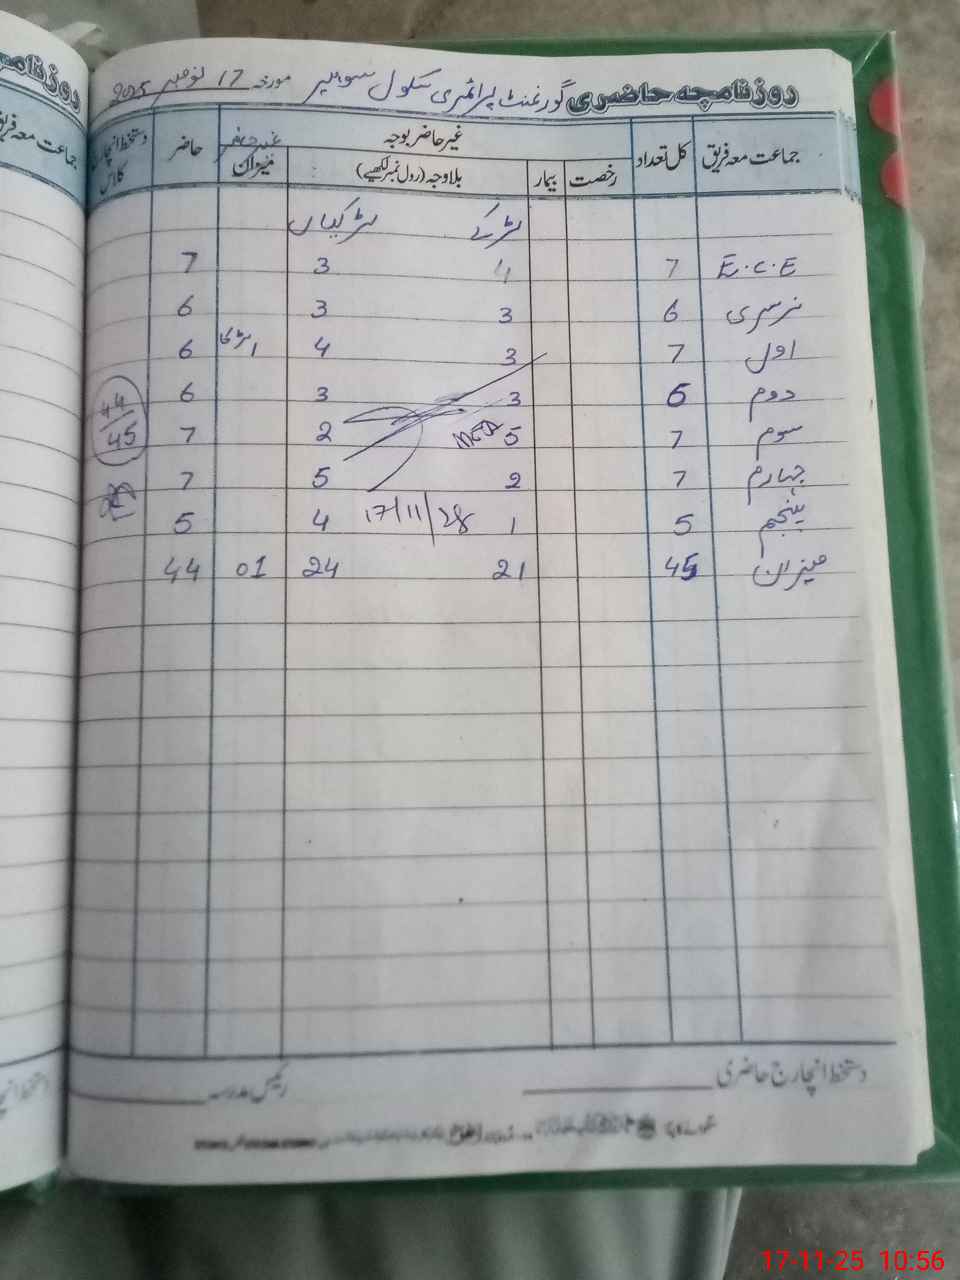 روزنامچہ حاضری گورنمنٹ پرائمری سکول سوہلیر مورخہ 17 نومبر 2025
جماعت معہ فریق کل تعداد غیر حاضر بوجہ غیر حاضر میزان حاضر دستخط انچارج کلاس
رخصت بیمار بلاوجہ (رول نمبر لکھیے)
لڑکے لڑکیاں
E.C.E 7 4 3 7
نرسری 6 3 3 6
اول 7 3 4 1لڑکا 6
دوم 6 3 3 6 44
سوم 7 5 2 7 45
MEA
چہارم 7 2 5 7
پنجم 5 1 4 5
17/11/
میزان 45 21 24 01 44
دستخط انچارج حاضری رئیس مدرسہ
روزنامچہ
جماعت معہ فریق
17-11-25 10:56